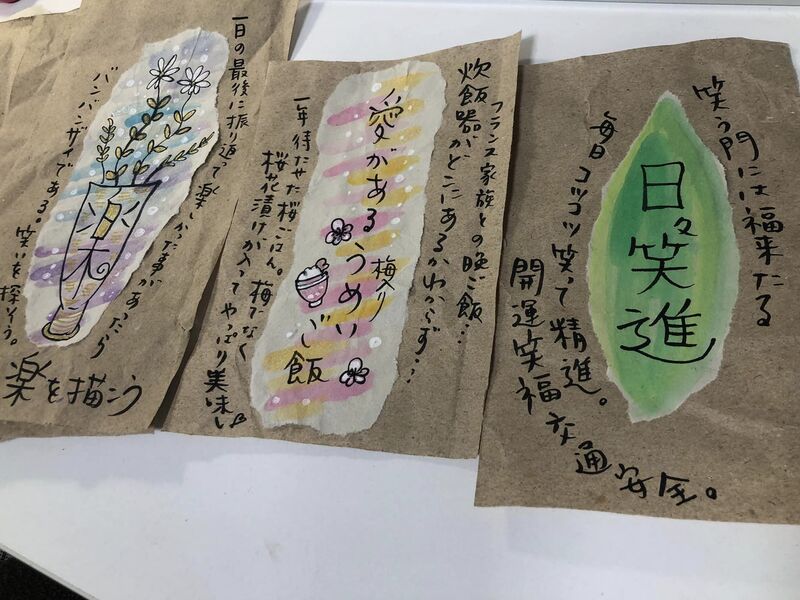 笑う門には福来たる
日々笑進
毎日コツコツ笑って精進。
開運笑福交通安全。
フランス家族との晩ご飯…
炊飯器がどこにあるかわからず…
愛があるうめい
梅入り
ご飯
一年待たせた桜ごはん。梅でなく
桜花漬けが入ってやっぱり美味しい
一日の最後に振り返って楽しかった事があったら
バンバンザイである。笑いを探そう。
楽を描こう